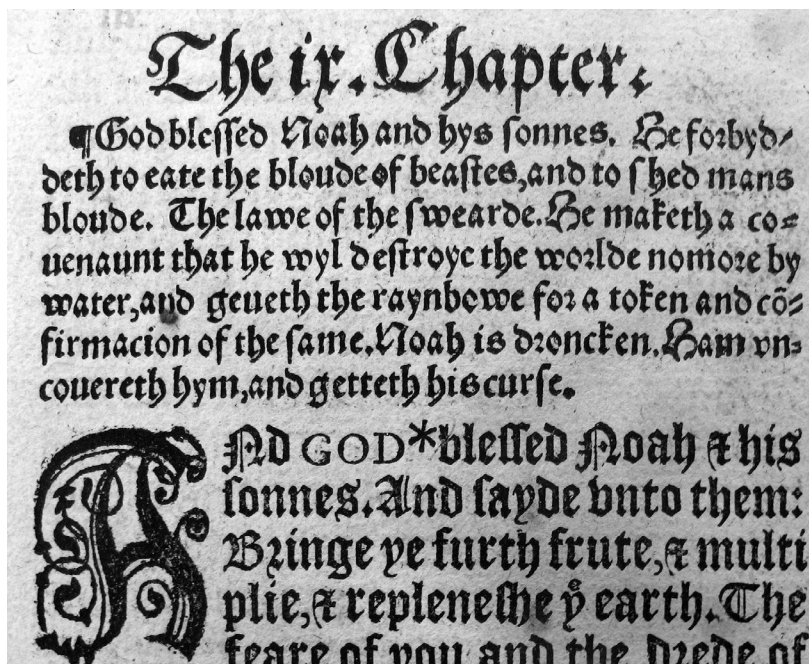 The ix. Chapter.
¶God blessed Noah and hys sonnes. He forbyd⸗
deth to eate the bloude of beastes,and to shed mans
bloude. The lawe of the swearde.He maketh a co⸗
uenaunt that he wyl destroye the worlde nomore by
water,and geueth the raynbowe for a token and cõ⸗
firmacion of the same.Noah is droncken.Ham vn⸗
couereth hym,and getteth his curse.
AND GOD*blessed Noah & his
sonnes.And sayde vnto them:
Bringe ye furth frute,& multi
plie,& repleneshe yͤ earth.The
feare of you and the drede of